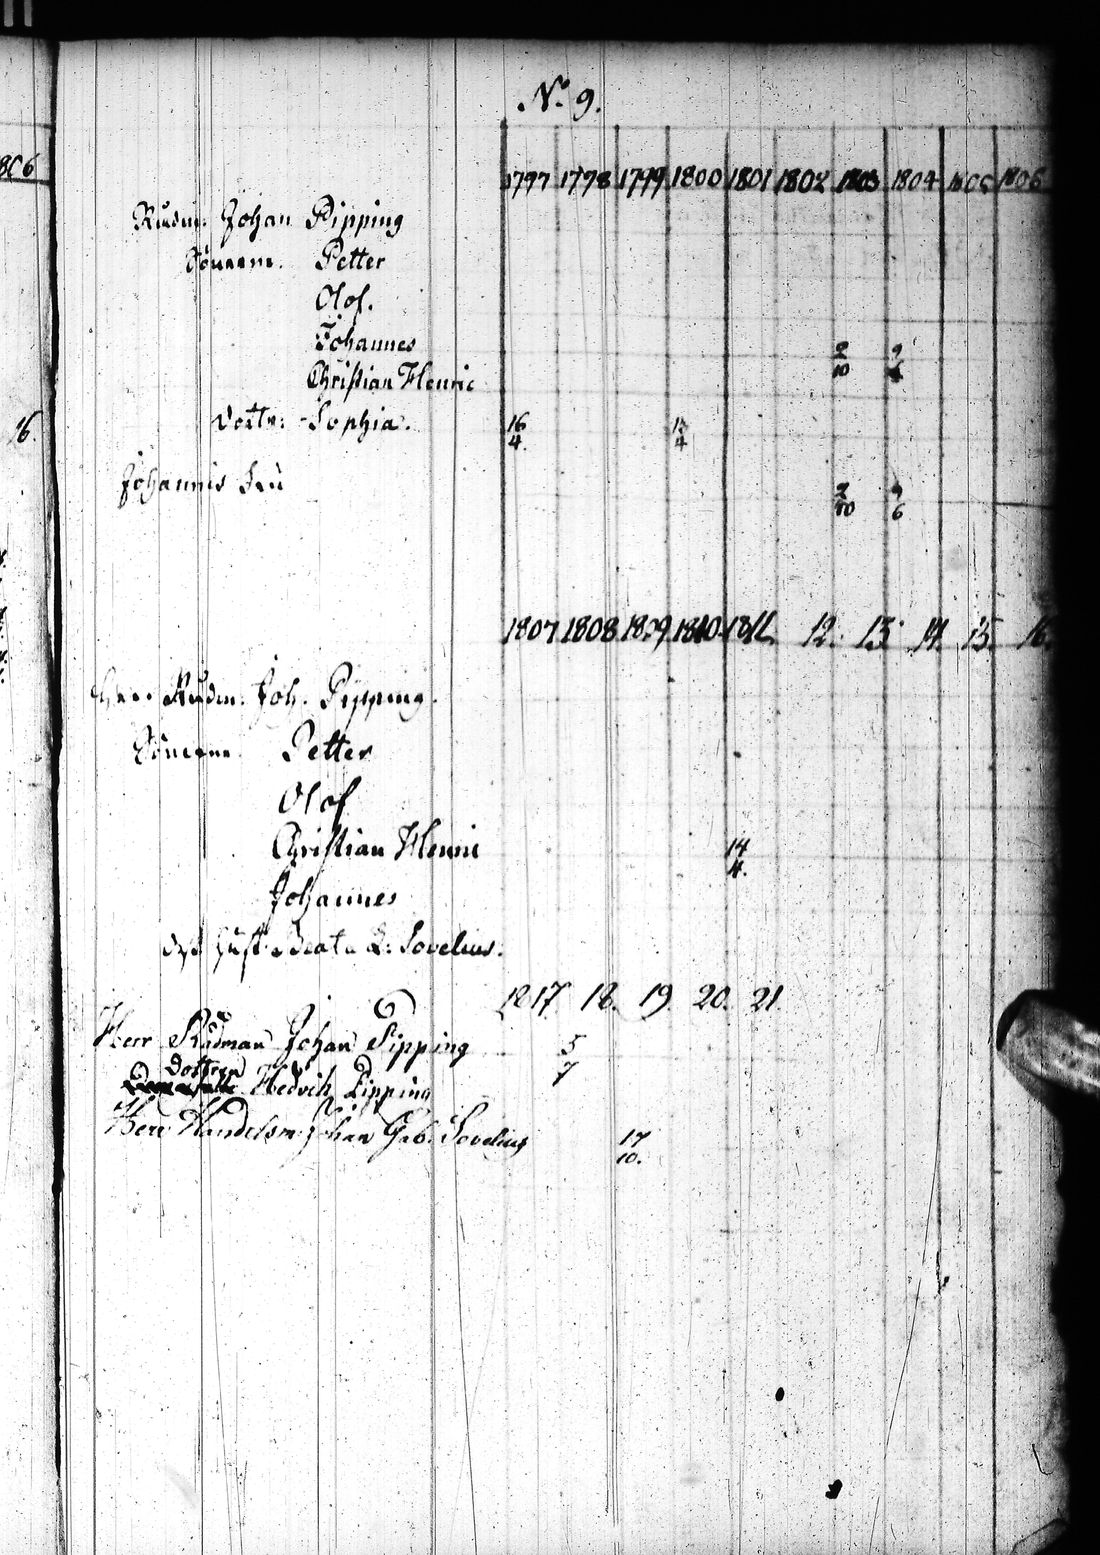 No 9.
1806
1797 1798 1799 1800 1801 1802 1803 1804 1805 1806
Rådm. Johan Pipping
Sönerne. Petter
Olof.
Johannes 2/10 9/6
Christian Henric
Dottr: Sophia. 16/4. 13/4
16.
Johannis Fru 2/10 9/6
1807 1808 1809 1810 1811. 12. 13 14. 15. 16.
Herr Rådm. Joh. Pipping.
Sönerne Petter
Olof
Christian Henric 14/4.
Johannes
Hust. Beata L: Sovelius.
1817 18. 19. 20. 21
Herr Rådman Johan Pipping 5/7
Dottren
Hedvih Pipping
Herr Handelsm. Johan Gab. Sovelius 17/10.